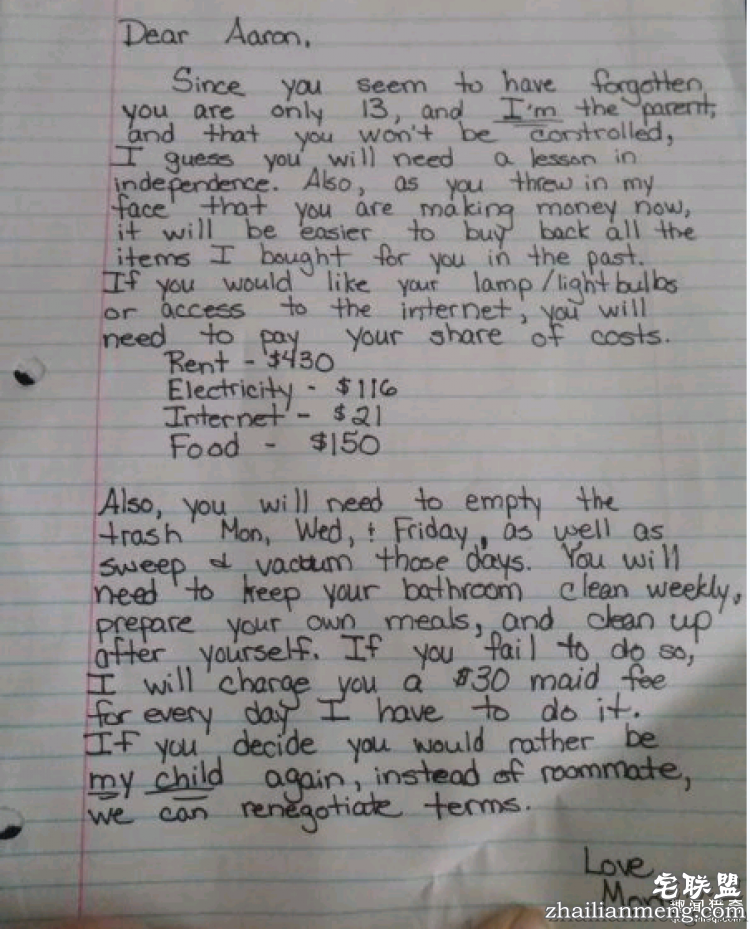 Dear Aaron,
Since you seem to have forgotten
you are only 13, and I'm the parent,
and that you won't be controlled,
I guess you will need a lesson in
independence. Also, as you threw in my
face that you are making money now,
it will be easier to buy back all the
items I bought for you in the past.
If you would like your lamp/lightbulbs
or access to the internet, you will
need to pay your share of costs.
Rent - $430
Electricity - $116
Internet - $21
Food - $150
Also, you will need to empty the
trash Mon, Wed, & Friday, as well as
sweep & vacuum those days. You will
need to keep your bathroom clean weekly,
prepare your own meals, and clean up
after yourself. If you fail to do so,
I will charge you a $30 maid fee
for every day I have to do it.
If you decide you would rather be
my child again, instead of roommate,
we can renegotiate terms.
Love
宅联盟
zhailianmeng.com